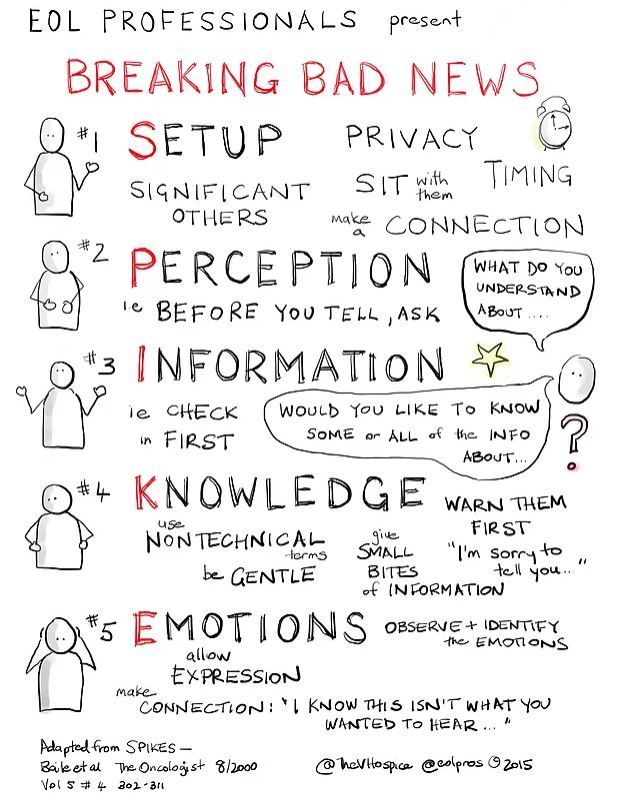 EOL PROFESSIONALS present
BREAKING BAD NEWS
#1 SETUP
PRIVACY
TIMING
SIGNIFICANT
OTHERS
SIT with
them
make
a CONNECTION
#2 PERCEPTION
ie BEFORE YOU TELL, ASK
WHAT DO YOU
UNDERSTAND
ABOUT ....
#3 INFORMATION
ie CHECK
in FIRST
WOULD YOU LIKE TO KNOW
SOME or ALL of the INFO
ABOUT...
?
#4 KNOWLEDGE
use
NONTECHNICAL
terms
be GENTLE
give
SMALL
BITES
of INFORMATION
WARN THEM
FIRST
"I'm sorry to
tell you.."
#5 EMOTIONS
OBSERVE + IDENTIFY
the EMOTIONS
allow
EXPRESSION
make
CONNECTION: "I KNOW THIS ISN'T WHAT YOU
WANTED TO HEAR..."
Adapted from SPIKES —
Baile et al The Oncologist 8/2000
Vol 5 #4 302-311
@TheVHospice @eolpros © 2015